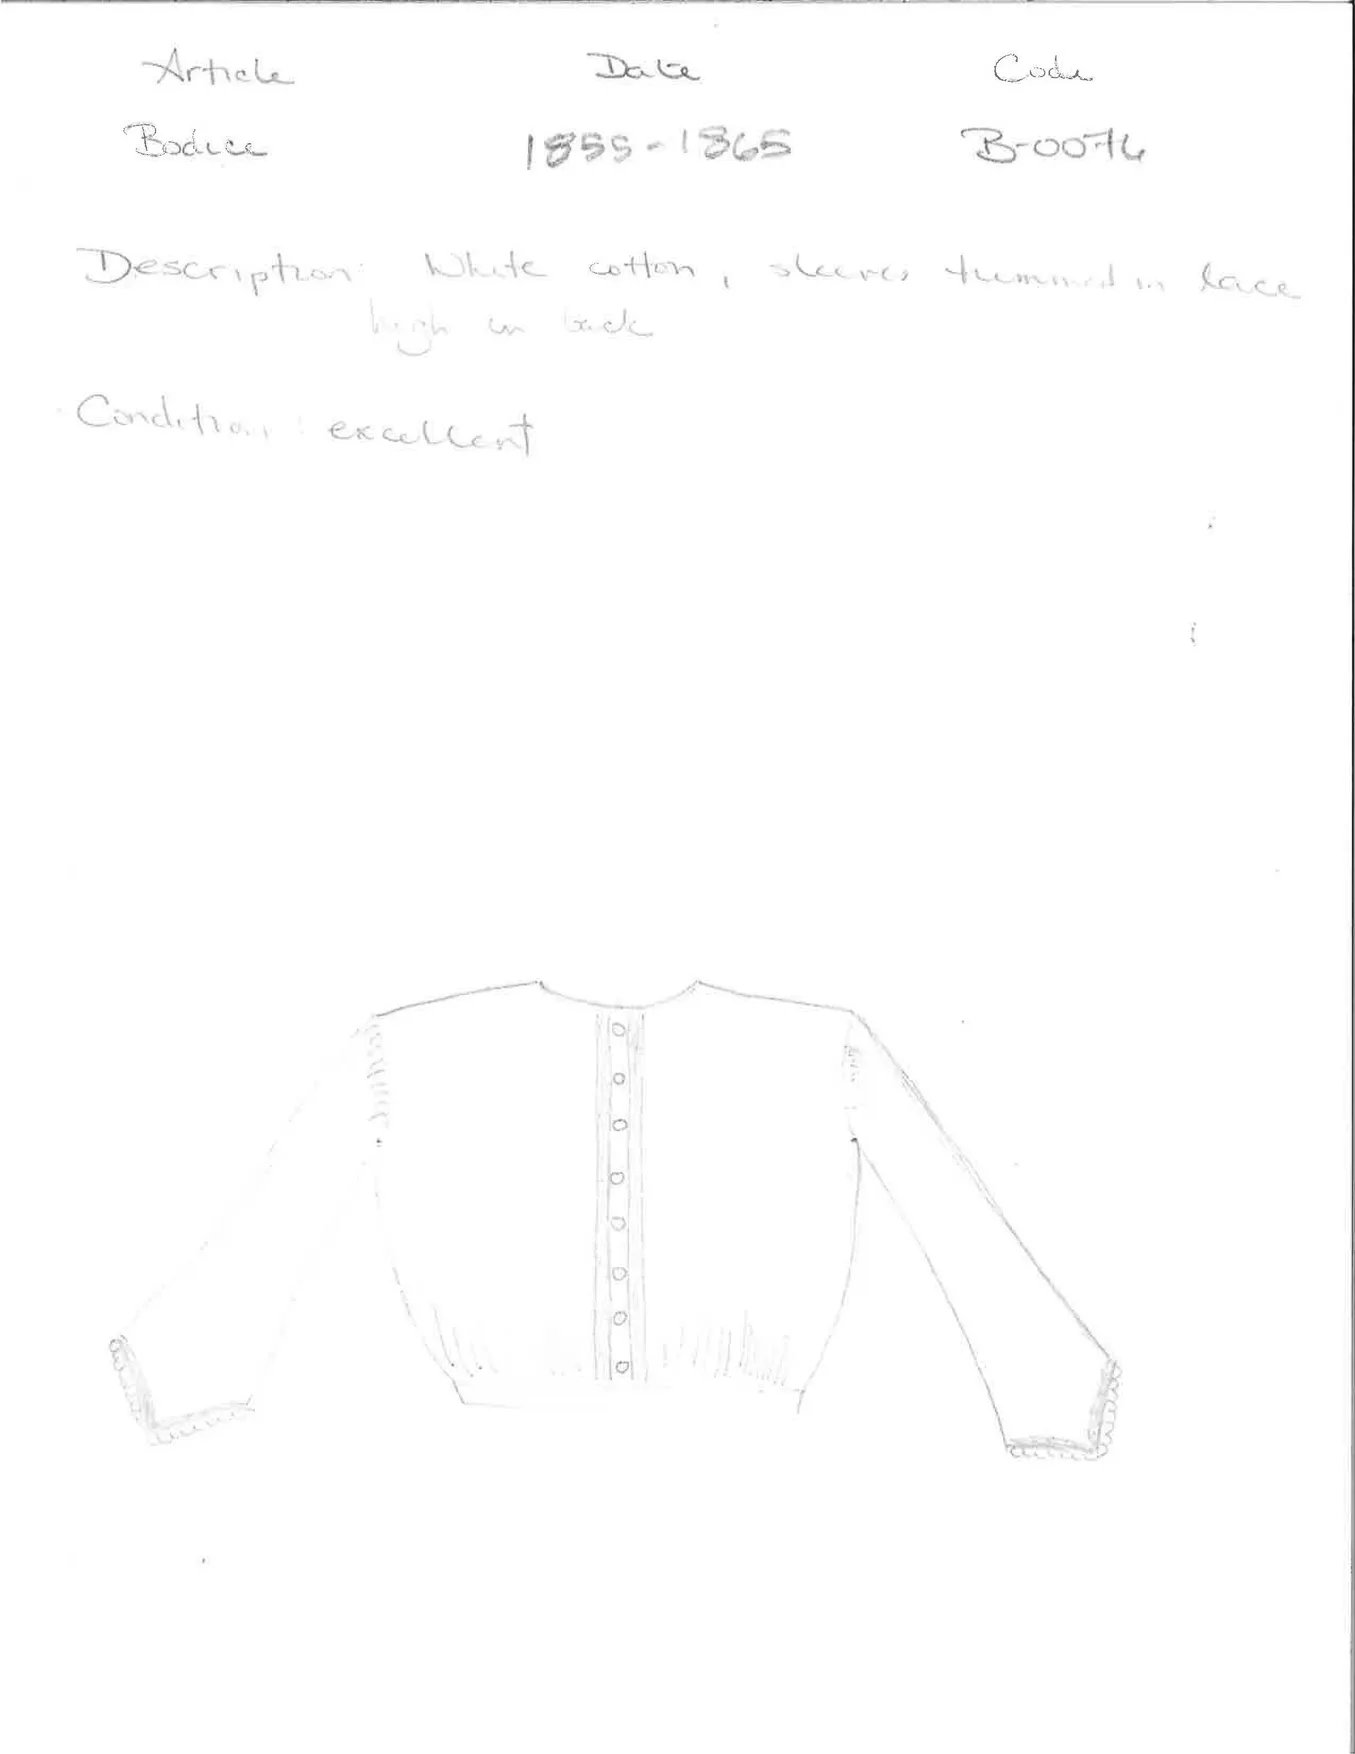 Article Date Code
Bodice 1855-1865 B-0076
Description: White cotton, sleeves trimmed in lace
high in back
Condition: excellent